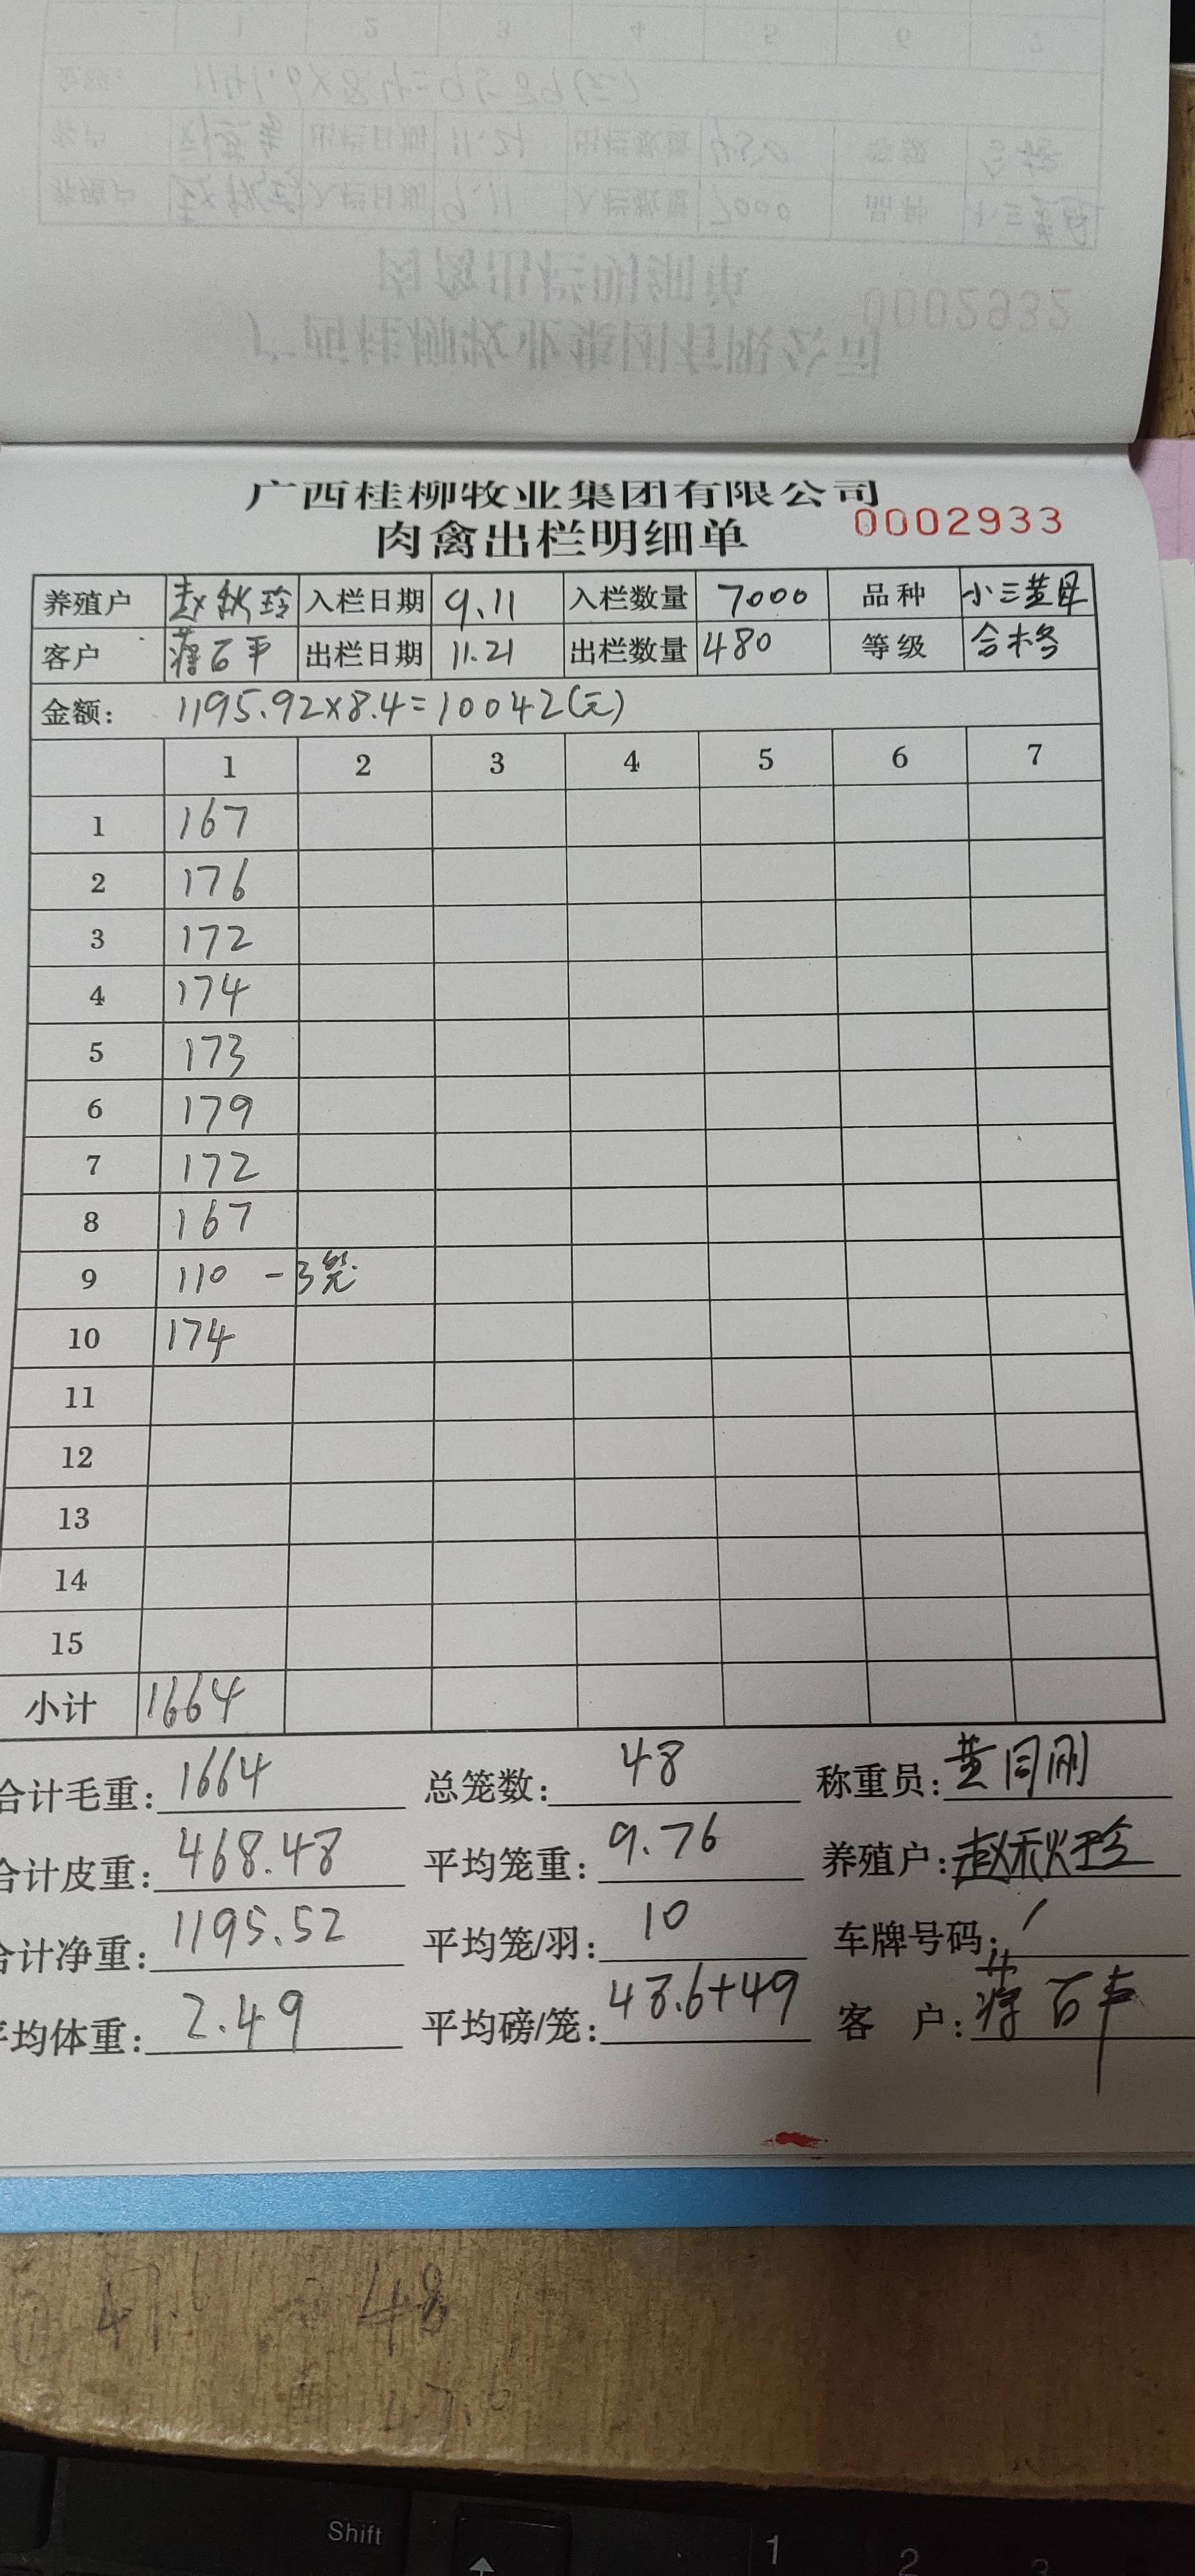 0002932
广西桂柳牧业集团有限公司
肉禽出栏明细单 0002933
养殖户 赵秋玲 入栏日期 9.11 入栏数量 7000 品种 小三黄母
客户 蒋百平 出栏日期 11.21 出栏数量 480 等级 合格
金额: 1195.92×8.4=10042(元)
1 2 3 4 5 6 7
1 167
2 176
3 172
4 174
5 173
6 179
7 172
8 167
9 110 -3笼
10 174
11
12
13
14
15
小计 1664
合计毛重: 1664 总笼数: 48 称重员: 黄同刚
合计皮重: 468.48 平均笼重: 9.76 养殖户: 赵秋玲
合计净重: 1195.52 平均笼/羽: 10 车牌号码: /
平均体重: 2.49 平均磅/笼: 48.6+49 客 户: 蒋百平
48
Shift
1 2 3